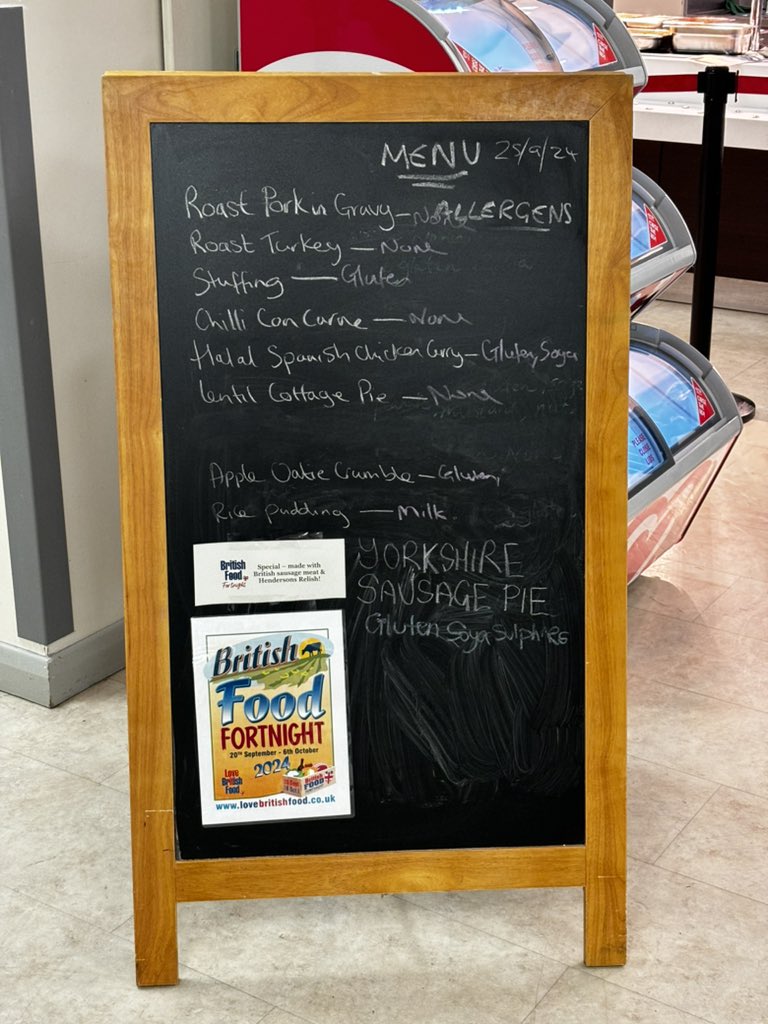 MENU 25/9/24
ALLERGENS
Roast Pork in Gravy - None
Roast Turkey - None
Stuffing - Gluten
Chilli Con Carne - None
Halal Spanish Chicken Curry - Gluten, Soya
Lentil Cottage Pie - None
Apple Crumble - Gluten
Rice pudding - Milk.
British
Food
Fortnight
Special – made with
British sausage meat &
Hendersons Relish!
YORKSHIRE
SAUSAGE PIE
Gluten Soya Sulphites
British
Food
FORTNIGHT
20th September - 6th October
2024
Love
British
Food
British
FOOD
www.lovebritishfood.co.uk